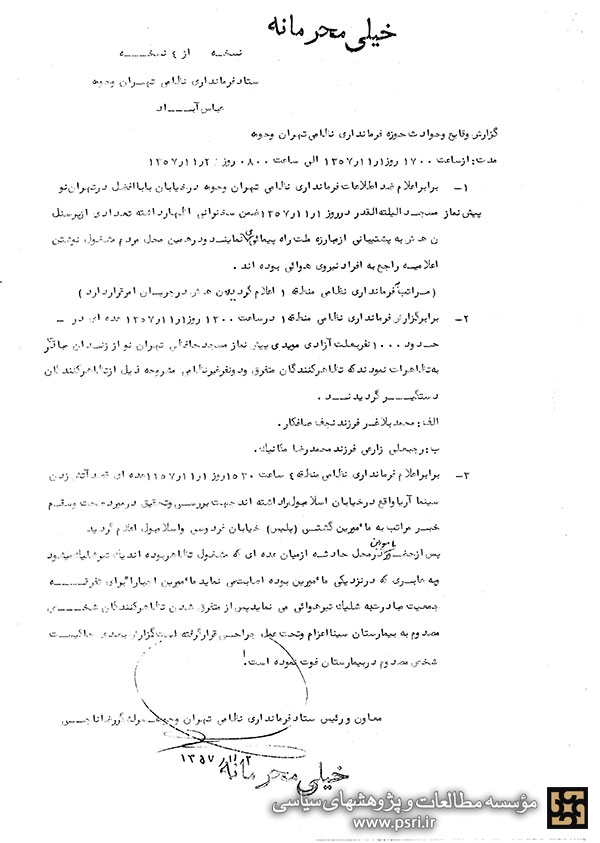 خیلی محرمانه
نسخه از ٤ نسخـــه
ستاد فرمانداری نظامی تهـران وحومه
عباس آبـــاد
گزارش وقایع وحوادث حوزه فرمانداری نظامی تهران وحومه
مدت: از ساعت ۱۷۰۰ روز ۱ر۱۱ر۱۳۵۷ الی ساعت ۰۸۰۰ روز ۲ر۱۱ر۱۳۵۷
۱- برابر اعلام ضد اطلاعات فرمانداری نظامی تهران وحومه در خیابان بابا افضل در تهران نو
پیش نماز مسجد الیلته القدر در روز ۱ر۱۱ر۱۳۵۷ ضمن سخنرانی اظهار داشته تعدادی از پرسنل
ن هـ ش به پشتیبانی از مبارزه ملت راه پیمائی نمایند و در همین محل مردم مشغول نوشتن
اعلامیه راجع به افراد نیروی هوائی بوده اند .
( مـراتب فرمانداری نظامی منطقه ۱ اعلام گردید ن هـ ش در جریان امر قرار دارد )
۲- برابر گزارش فرمانداری نظامی منطقه ۱ در ساعت ۱۲۰۰ روز ۱ر۱۱ر۱۳۵۷ عده ای در -
حدود ۱۰۰۰ نفر بعلت آزادی موبدی پیش نماز مسجد حافظی تهران نو از زندان
به تظاهرات نمودند که تظاهر کنندگان متفرق ودونفر غیر نظامی مشروحه ذیل از تظاهر کنندگان
دستگیـــر گردیدنــد .
الف: محمد بلاغـر فرزند نجف صافکار.
ب: رجبعلی زارعی فرزند محمد رضا مکانیک.
۳- برابر اعلام فرمانداری نظامی منطقه ٤ ساعت ۱۵۳۰ روز ۱ر۱۱ر۱۳۵۷ عده ای قصد آتش زدن
سینما آریا واقع در خیابان اسلامبول را داشته اند جهت بررسی وتحقیق در مورد صحت وسقم
خبـر مراتب به مأمورین گشتی (پلیس) خیابان فردوسی واسلامبول اعلام گردید
پس از حضور مأمورین در محل حادثه از میان عده ای که مشغول تظاهر بوده اند یک تیر شلیک میشود
وبه عابری که در نزدیکی مأمورین بوده اصابت می نماید مأمورین اجبارا" برای تفرقـــه
جمعیت مبادرت به شلیک تیر هوائی می نمایند پس از متفرق شدن تظاهر کنندگان شخـــص
مصدوم به بیمارستان سینا اعزام وتحت عمل جراحی قرار گرفته است گزارش بعدی حاکیست
شخص مصدوم در بیمارستان فوت نموده است!
معاون و رئیس ستاد فرمانداری نظامی تهران وحومه
۲ر۱۱ر۱۳۵۷
خیلی محرمانه
مؤسسه مطالعات و پژوهشهای سیاسی
www.psri.ir